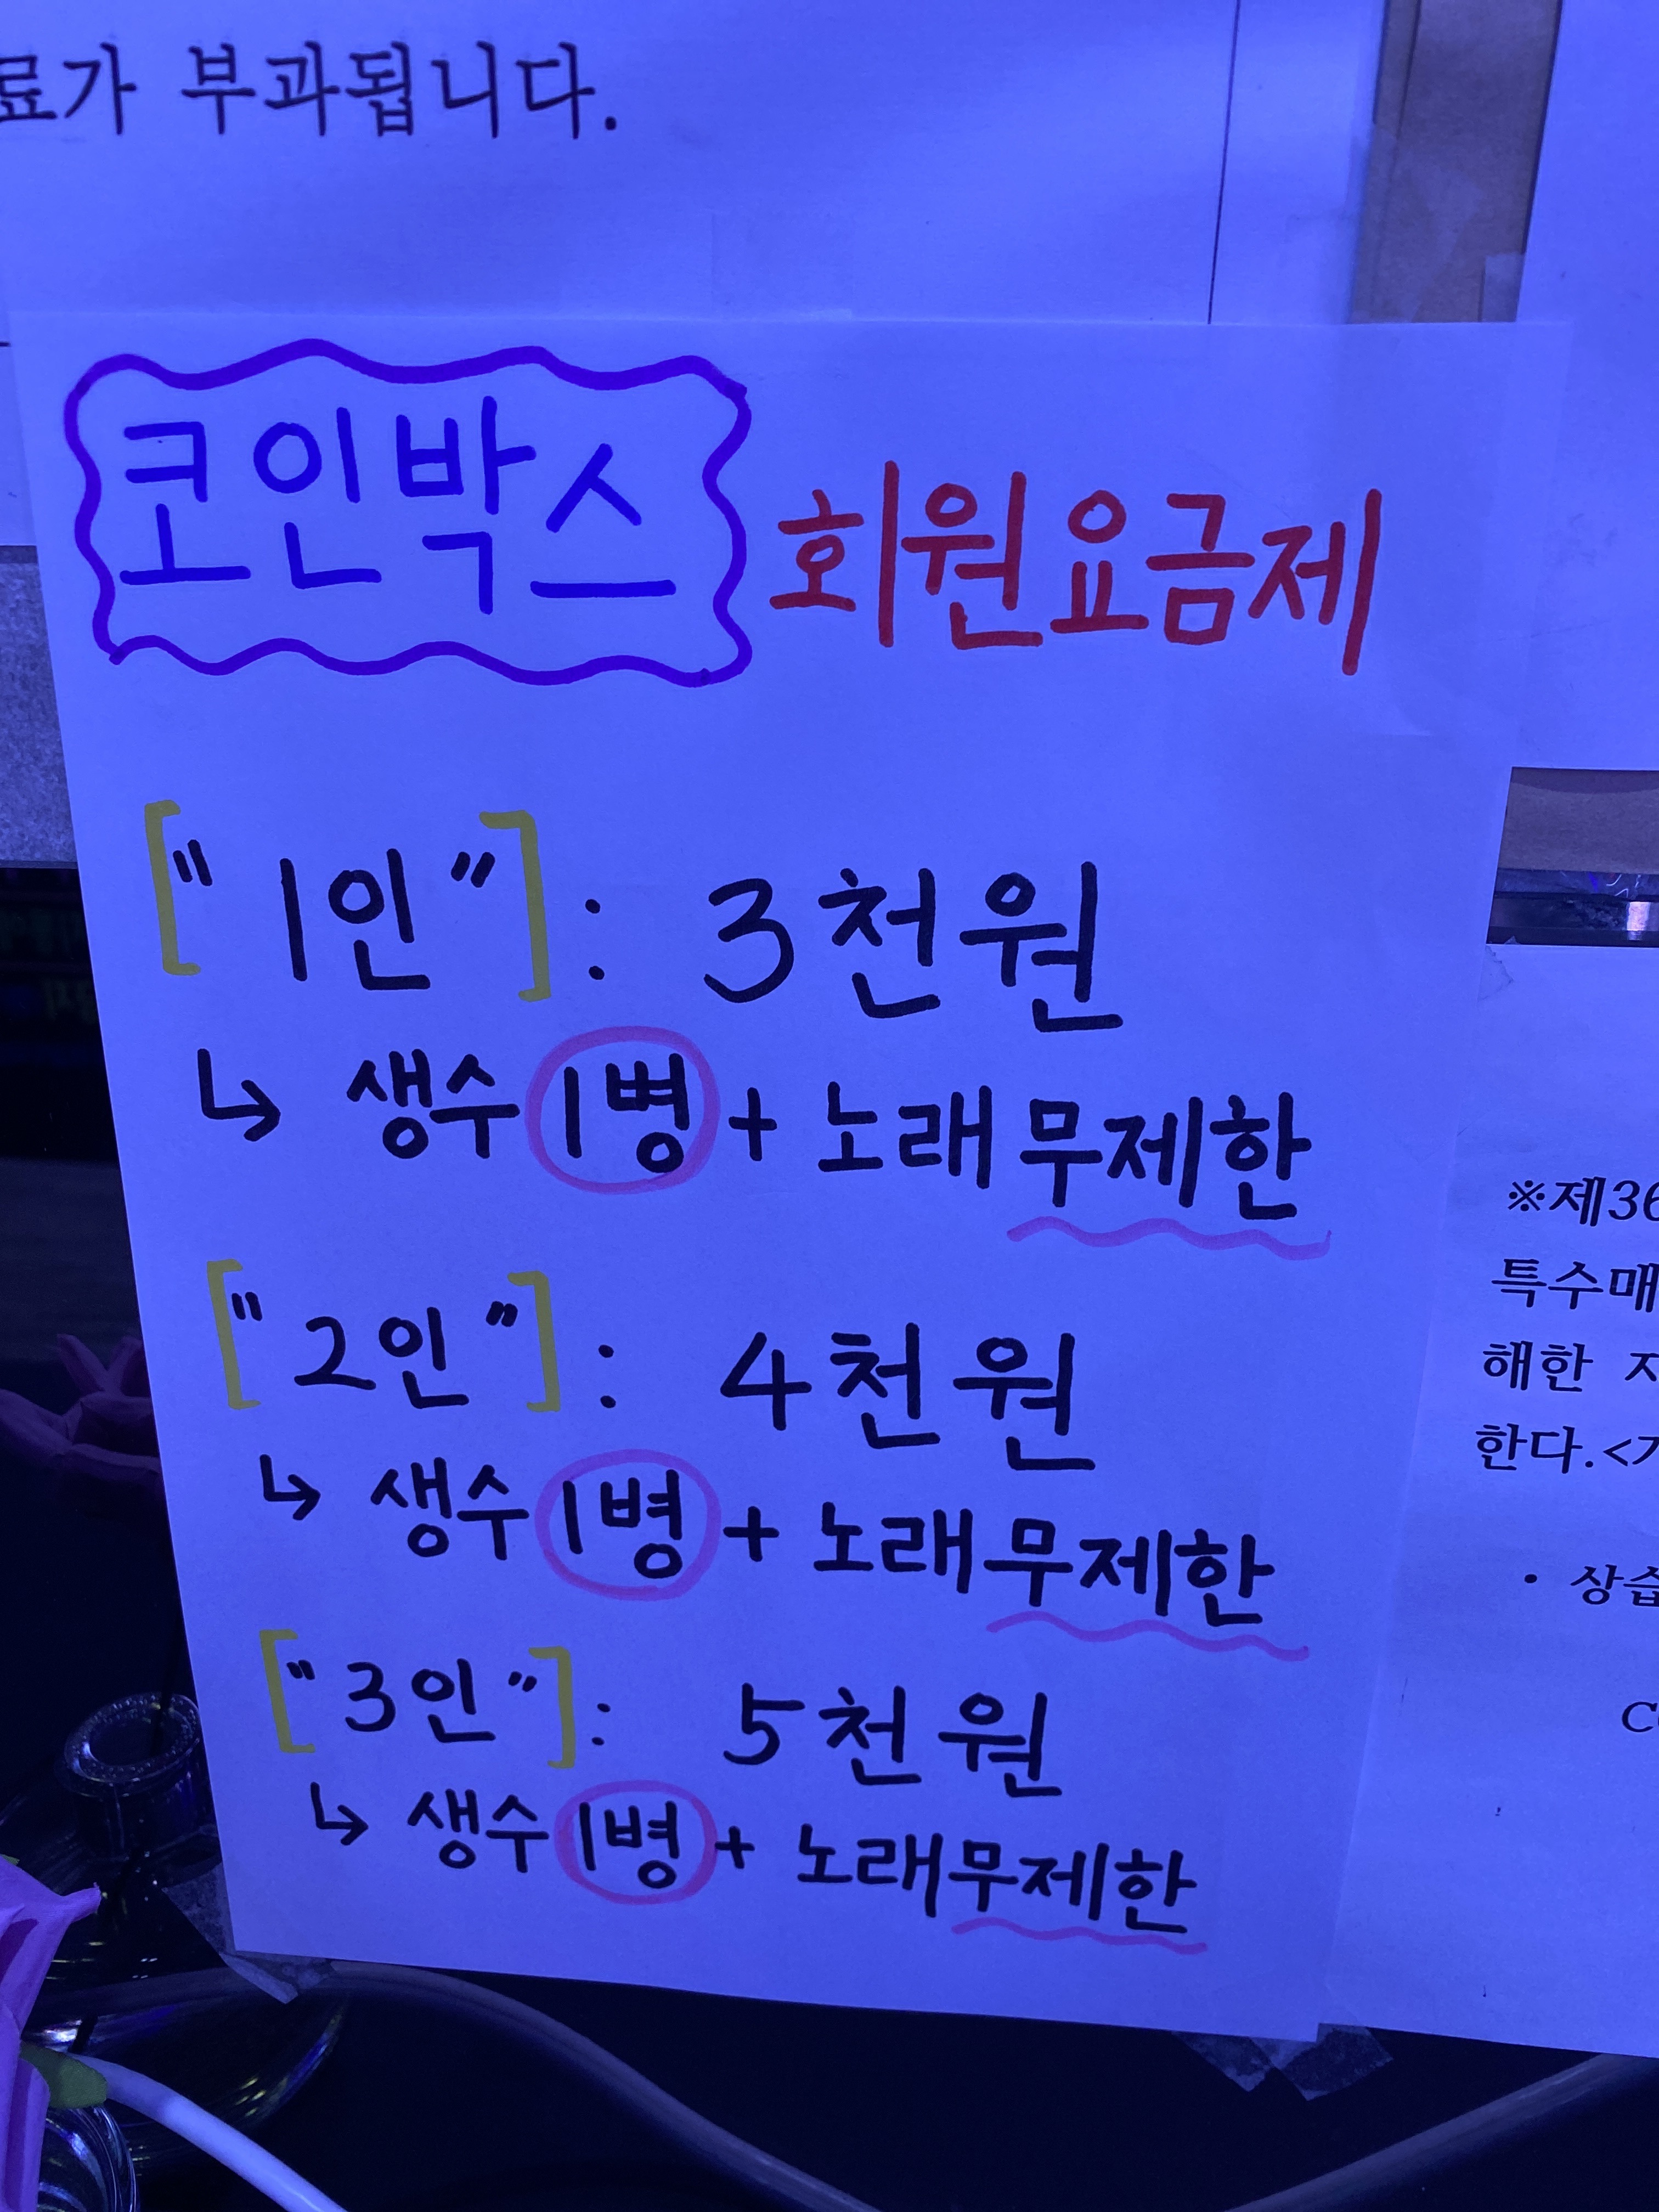 료가 부과됩니다.
코인박스 회원요금제
["1인"]: 3천원
↳ 생수 1병 + 노래 무제한
["2인"]: 4천원
↳ 생수 1병 + 노래 무제한
["3인"]: 5천원
↳ 생수 1병 + 노래 무제한
※제36
특수매
해한
한다.<
• 상습